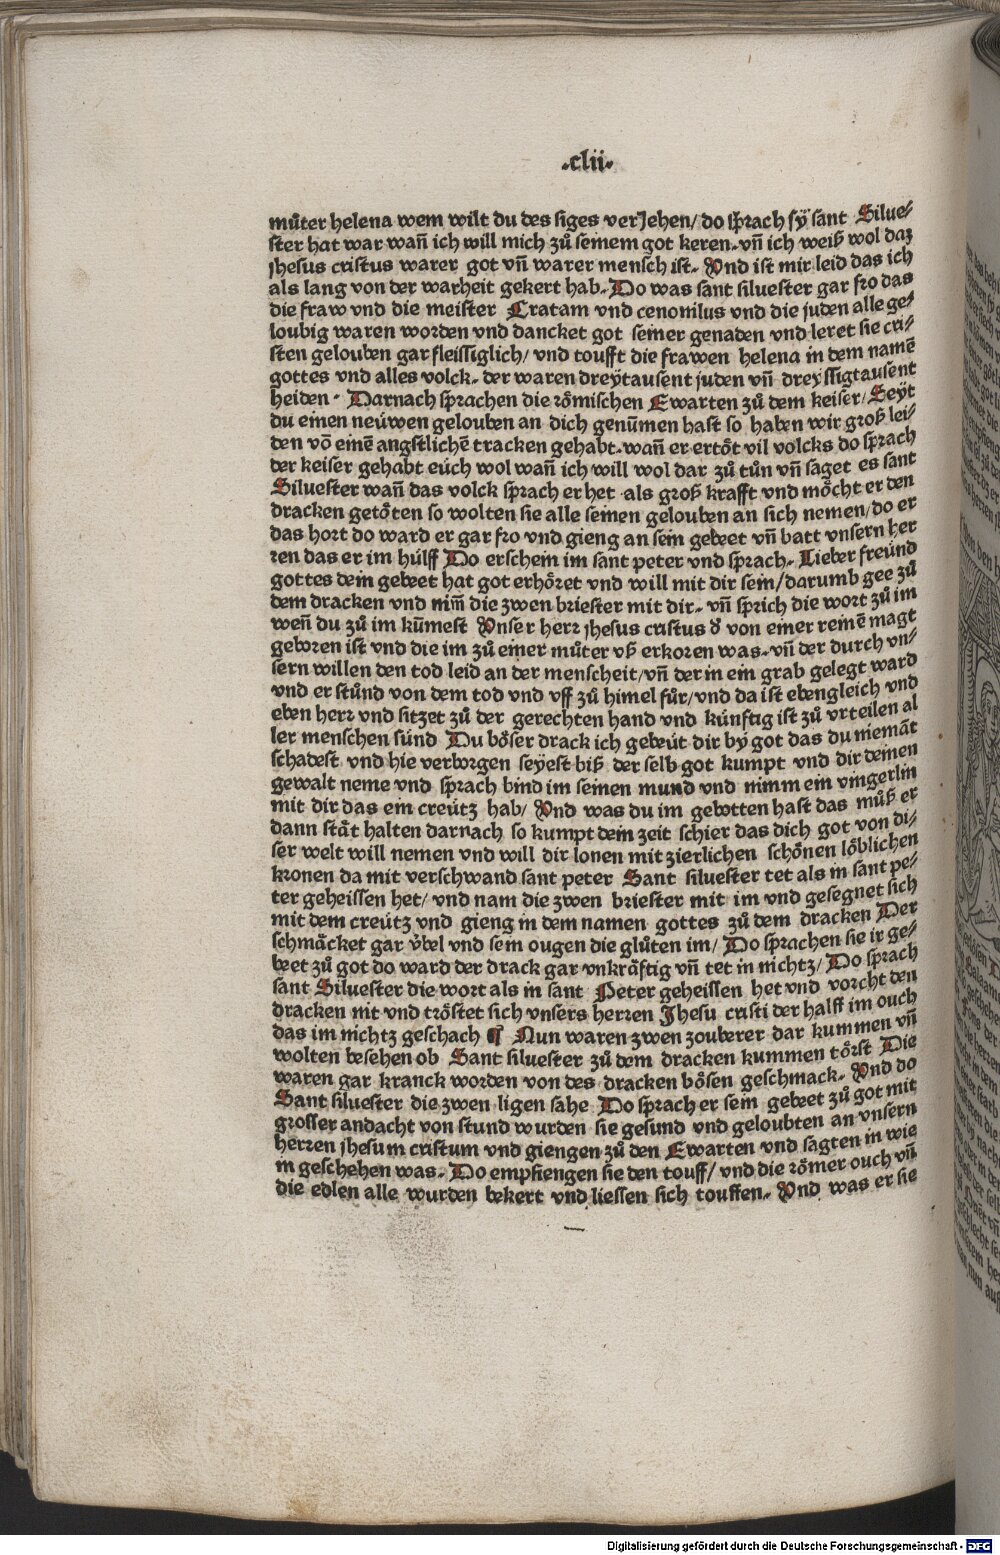 .clii.
můter helena wem wilt du des siges verJehen/ do sprach sÿ sant Silue⸗
ster hat war wañ ich will mich zů seinem got keren. vñ ich weiß wol daz
jhesus cristus warer got vñ warer mensch ist. Vnd ist mir leid das ich
als lang von der warheit gekert hab. Do was sant siluester gar fro das
die fraw vnd die meister Cratam vnd cenonilus vnd die juden alle ge⸗
loubig waren worden vnd dancket got seiner genaden vnd leret sie cri⸗
sten gelouben gar fleissiglich/ vnd toufft die frawen helena in dem namē
gottes vnd alles volck. der waren dreÿtausent juden vñ dreyssigtausent
heiden. Darnach sprachen die römischen Ewarten zů dem keiser/ Seÿt
du einen neüwen gelouben an dich genūmen hast so haben wir groß lei⸗
den vō einē angstlichē tracken gehabt. wañ er ertöt vil volcks do sprach
der keiser gehabt eüch wol wañ ich will wol dar zů tůn vñ saget es sant
Siluester wañ das volck sprach er het als groß krafft vnd möcht er den
dracken getöten so wolten sie alle seinen gelouben an sich nemen/ do er
das hort do ward er gar fro vnd gieng an sein gebeet vñ batt vnsern her
ren das er im hülff Do erschein im sant peter vnd sprach. Lieber freünd
gottes dein gebeet hat got erhöret vnd will mit dir sein/ darumb gee zů
dem dracken vnd nim̄ die zwen briester mit dir. vñ sprich die wort zů im
weñ du zů im kūmest Vnser herr jhesus cristus ð von einer reinē magt
geboren ist vnd die im zů einer můter vß erkoren was. vñ der durch vn⸗
sern willen den tod leid an der menscheit/ vñ der in ein grab gelegt ward
vnd er stůnd von dem tod vnd vff zů himel fůr/ vnd da ist ebengleich vnd
eben herr vnd sitzet zů der gerechten hand vnd künftig ist zů vrteilen al
ler menschen sünd Du böser drack ich gebeüt dir bÿ got das du niemāt
schadest vnd hie verborgen seyest biß der selb got kumpt vnd dir deinen
gewalt neme vnd sprach bind im seinen mund vnd nimm ein vingerlin
mit dir das ein creütz hab/ Vnd was du im gebotten hast das můß er
dann stät halten darnach so kumpt dein zeit schier das dich got von di⸗
ser welt will nemen vnd will dir lonen mit zierlichen schönen löblichen
kronen da mit verschwand sant peter Sant siluester tet als in sant pe⸗
ter geheissen het/ vnd nam die zwen briester mit im vnd gesegnet sich
mit dem creütz vnd gieng in dem namen gottes zů dem dracken Der
schmäcket gar v̈bel vnd sein ougen die glůten im/ Do sprachen sie ir ge⸗
beet zů got do ward der drack gar vnkräftig vñ tet in nichtz/ Do sprach
sant Siluester die wort als in sant Peter geheissen het vnd vorcht den
dracken nit vnd tröstet sich vnsers herren Jhesu cristi der halff im ouch
das im nichtz geschach ¶ Nun waren zwen zouberer dar kummen vñ
wolten besehen ob Sant siluester zů dem dracken kummen törst Die
waren gar kranck worden von des dracken bösen geschmack. Vnd do
Sant siluester die zwen ligen sahe Do sprach er sein gebeet zů got mit
grosser andacht von stund wurden sie gesund vnd geloubten an vnsern
herren jhesum cristum vnd giengen zů den Ewarten vnd sagten in wie
in geschehen was. Do empfiengen sie den touff/ vnd die römer ouch vñ
die edlen alle wurden bekert vnd liessen sich touffen. Vnd was er sie
Digitalisierung gefördert durch die Deutsche Forschungsgemeinschaft - DFG